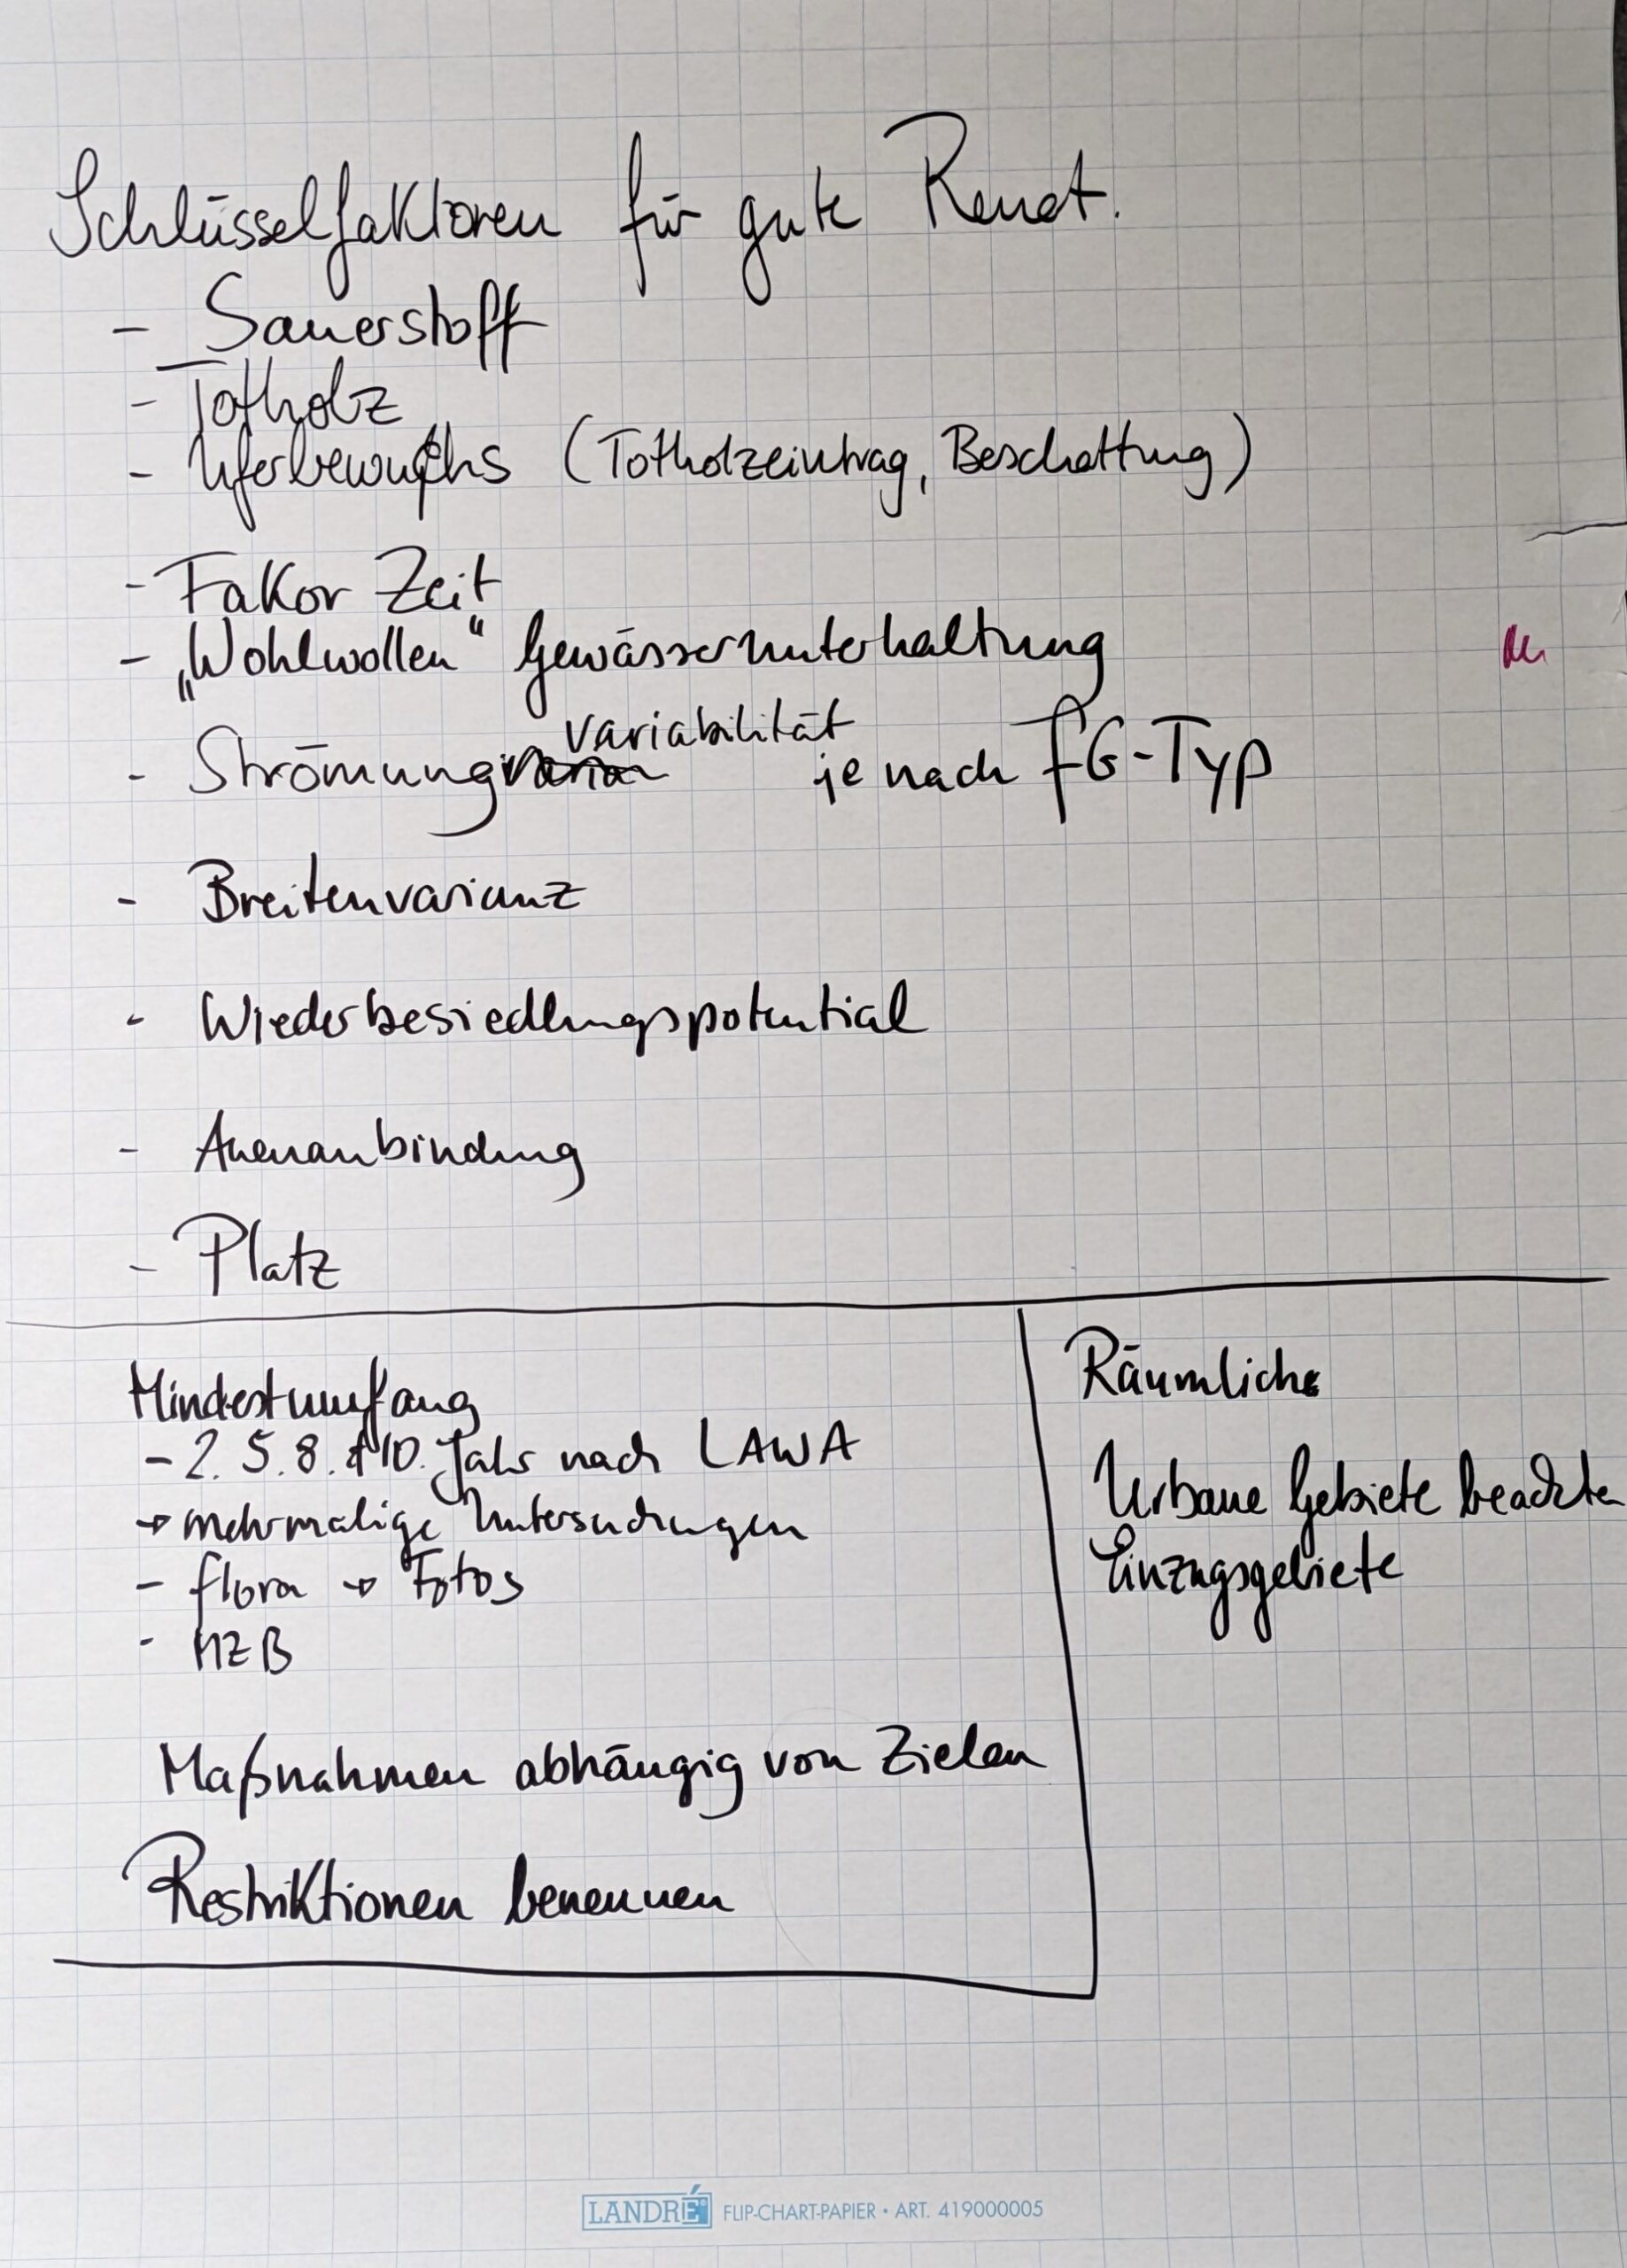 Schlüsselfaktoren für gute Renat.
- Sauerstoff
- Totholz
- Uferbewuchs (Totholzeintrag, Beschattung)
- Fakor Zeit
- „Wohlwollen“ Gewässerunterhaltung
- Strömungsvariabilität je nach FG-Typ
- Breitenvarianz
- Wiederbesiedlungspotential
- Auenanbindung
- Platz
Mindestumfang
- 2. 5. 8. & 10. Jahr nach LAWA
→ mehrmalige Untersuchungen
- Flora → Fotos
- MZB
Maßnahmen abhängig von Zielen
Restriktionen benennen
Räumliche
Urbane Gebiete beachten
Einzugsgebiete
LANDRÉ FLIP-CHART-PAPIER • ART. 419000005